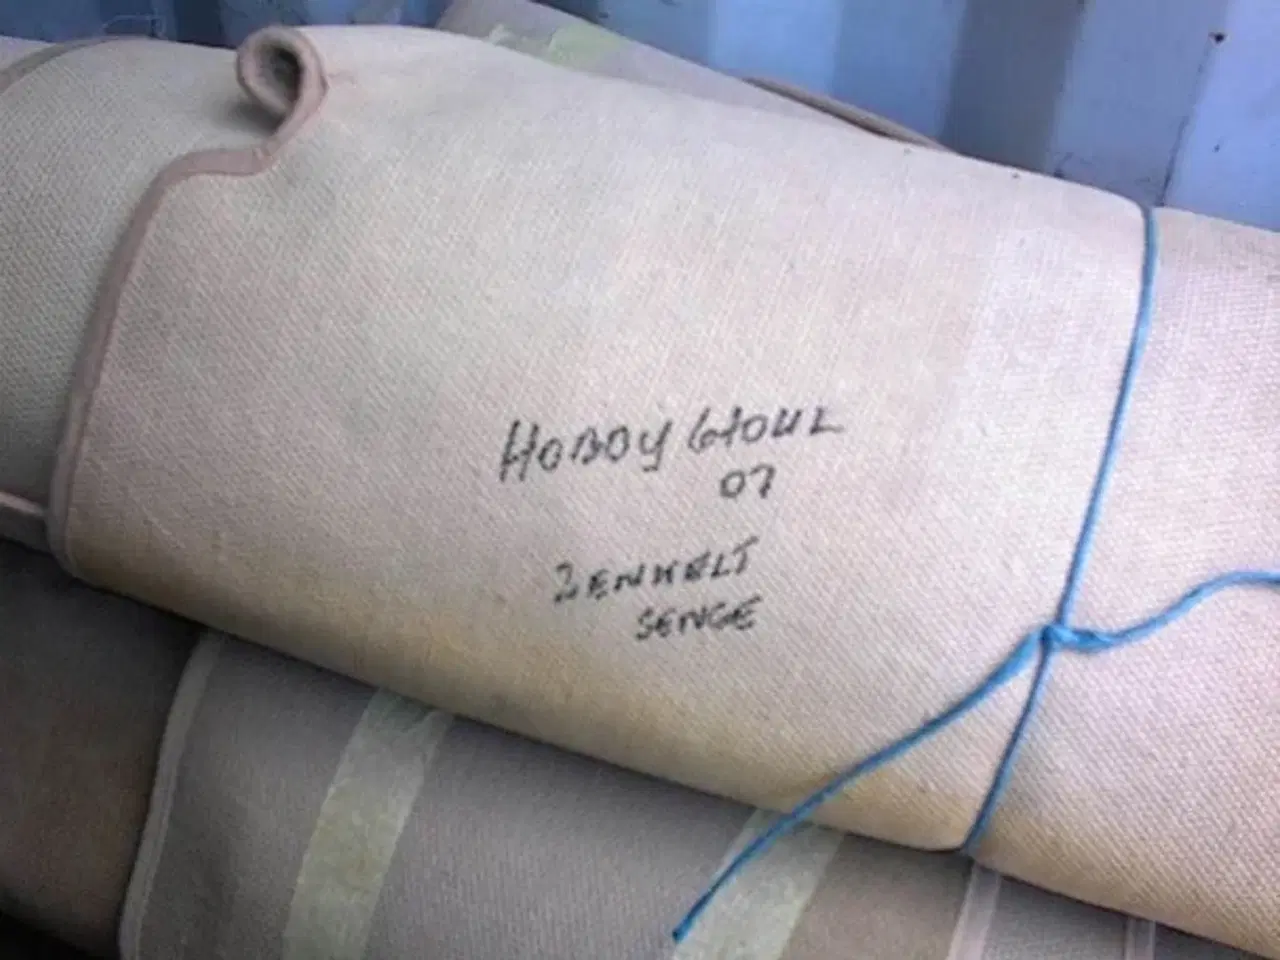 HOBBY 610 UL
07
2 ENKELT
SENGE